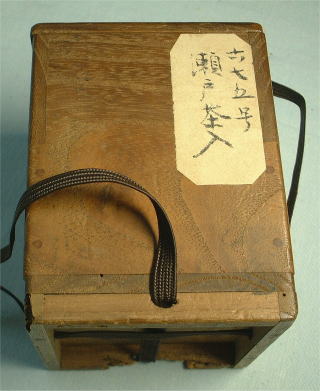 六七五号
瀬戸茶入